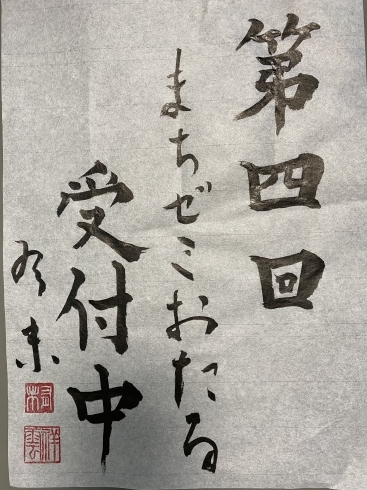 第四回
まちゼミおたる
受付中